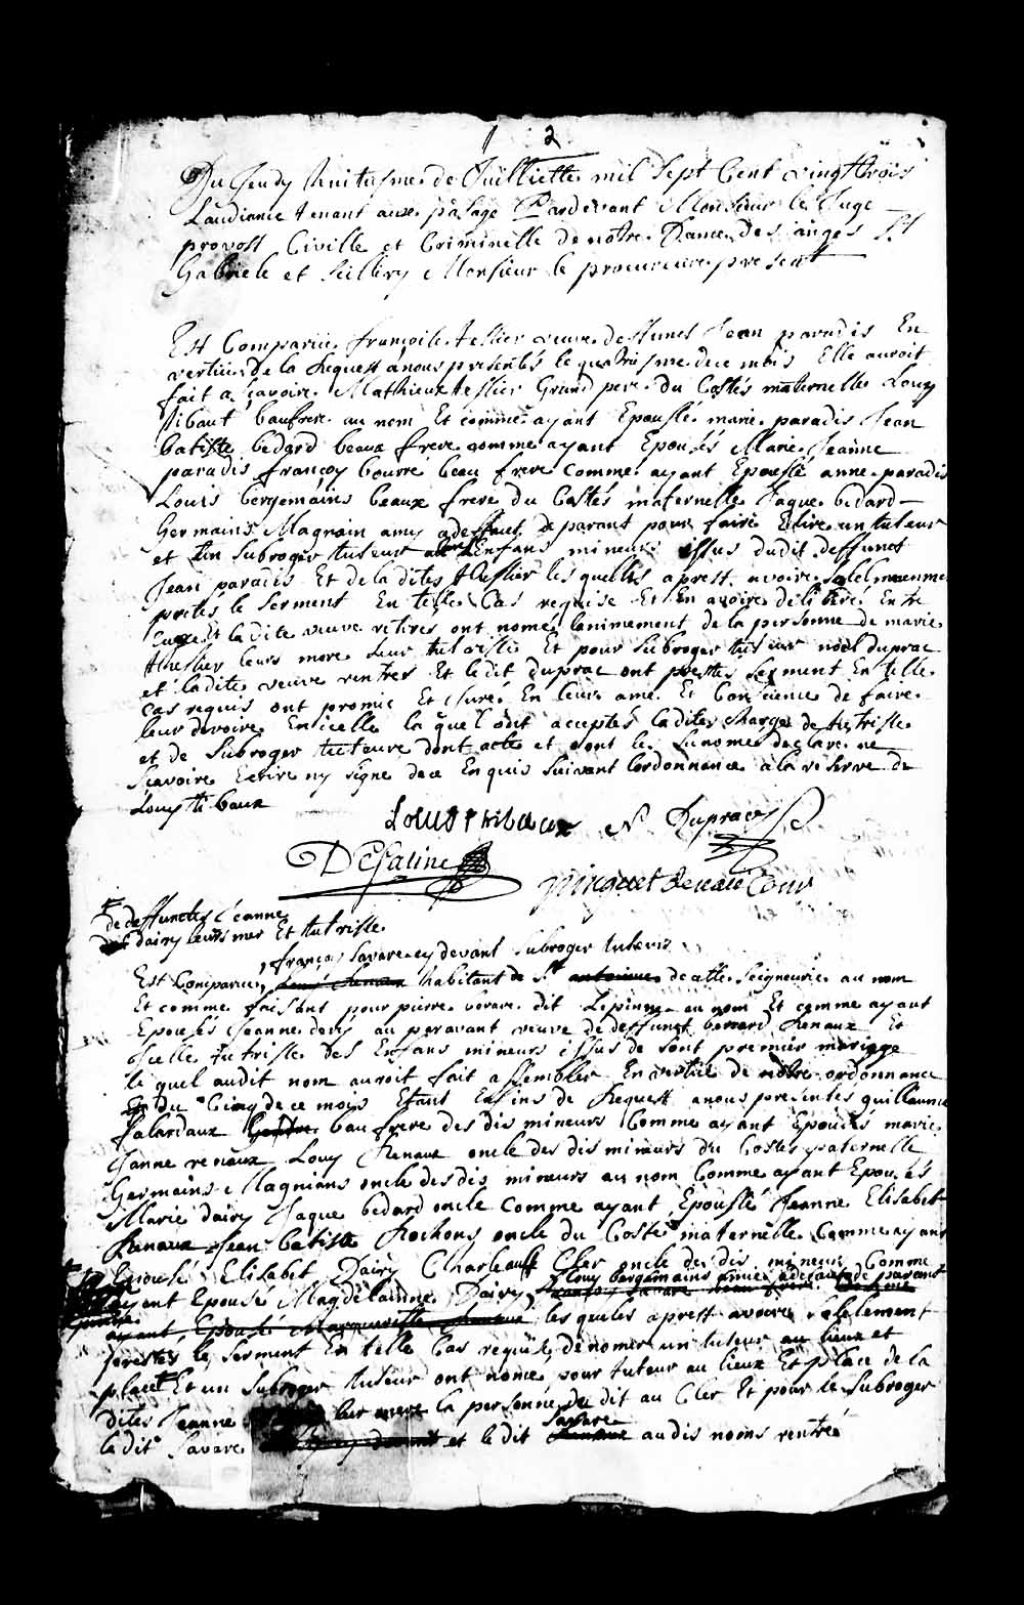 2
Du Jeudy huitiesme de Juilliette mil Sept Cent vingt trois
Laudiance tenant aux pasage Pardevant Monsieur le Juge
provost Civille et Criminelle de notre Dames des anges St
Gabriele et Sillery Monsieur le procureure present
Est Comparüe françoise tessier veuve deffunct Jean paradis En
vertue de la Request a nous presentés le quatriesme de ce mois Elle auroit
fait a scavoire Mathieux tessier Grand pere du Costés maternelle Louy
tibaut baufrere au nom Et comme ayant Epousse marie paradis Jean
batiste bedard beaux frere comme ayant Epousés Marie Jeanne
paradis françoy bourre beau frere Comme ayant Epousse anne paradis
Louis bergemains beaux frere du Costés maternelle Jaque bedard
Germains Magnain amy a deffaut de parant pour faire Elire un tuteur
et un Subroger tuteur aux Enfans mineurs issus dudit deffunct
Jean paradis Et de la dites thessier les quelles aprest avoire Solelmenme
prettes le Serment En telle Cas requise Et En avoire déliberé Entre
Euxe Et la dite veuve retirés ont nomé lanimement de la personne de marie
thessier leurs mere leur tutrisse Et pour Subroger tuteur noël duprac
et ladite veuve rentrés Et ledit duprac ont prettes Serment En telle
Cas requis ont promie Et Juré En leurs ame Et Consience de faire
leur devoire En icelle la quel odit acceptés ladites charges de tutrisse
et de Subroger tuteure dont acte et dont le Sunome declare ne
Scavoire Ecrire ny signe dece Enquis Suivant lordonnance a la reserve de
Louy tibaux
Louis thibaux N Duprac
DeSaline
pinguet de vaucour
de deffunctes Jeanne
dairy leurs mer Et tutrisse
françoi Savare cy devant Subroger tuteur
Est Comparue, habitant de St antoinne de cette Seigneurie au nom
Et comme faissant pour pierre verare dit Lepinne au nom Et comme ayant
Epousés Jeanne dery au paravant veuve de deffunct berrard Renaux Et
Icelle tutrisse des Enfans mineurs issus de sont premier mariage
le quel audit nom auroit fait assembler En vertue de nôtre ordonnance
En du Cinq de ce mois Etant En fins de Request a nous presentes guillaume
falardaux bau frere des dis mineurs Comme ayant Epousés marie
Janne renaux Louy Renaux oncle des dis mineurs du Costes paternelle
Germains Magnians oncle des dis mineurs au nom Comme ayant Epousés
Marie dairy Jaque bedard oncle Comme ayant Epoussé Jeanne Elisabet
Renaux Jean batiste Rochons oncle du Coste maternelle Comme ayant
Epousé Elisabet Dairy Charle auff Cler oncle des dis mineur Comme
Louy bergemains amie a defaute de parant
ayent Epousé Magdelainne Dairy,
ayant Epousé Marguerisse Renaux les queles aprest avoire Solelement
prestés le Serment En telle Cas requise, de nomer un tuteur au lieux et
place Et un Subroger tuteur ont nomé pour tuteur au lieux Et place de la
dites Jeanne leur mere la personne du dit au Cler Et pour le Subroger
le dit Savare et le dit Savare audis noms rentré